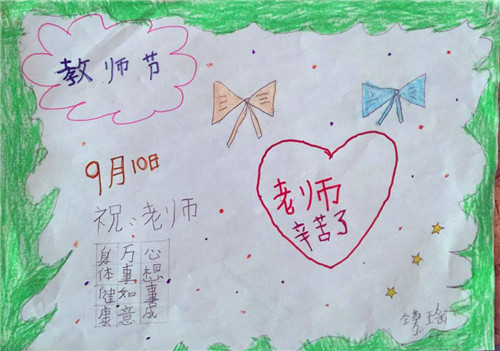 教师节
9月10日
祝:老师
身体健康
万事如意
心想事成
老师
辛苦了